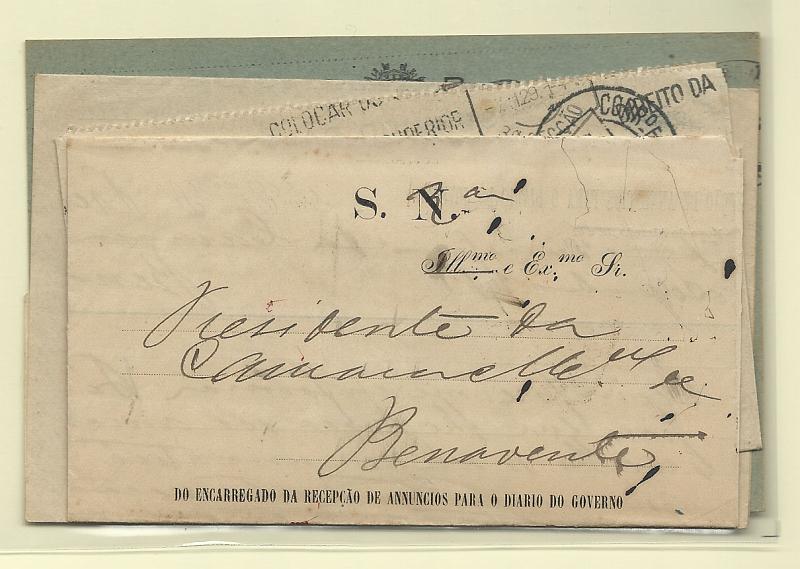 COLOCAR
CORREITO DA
S. N.
Ill.mo e Ex.mo Sr.
Presidente da
Camara M.al de
Benavente
DO ENCARREGADO DA RECEPÇÃO DE ANNUNCIOS PARA O DIARIO DO GOVERNO